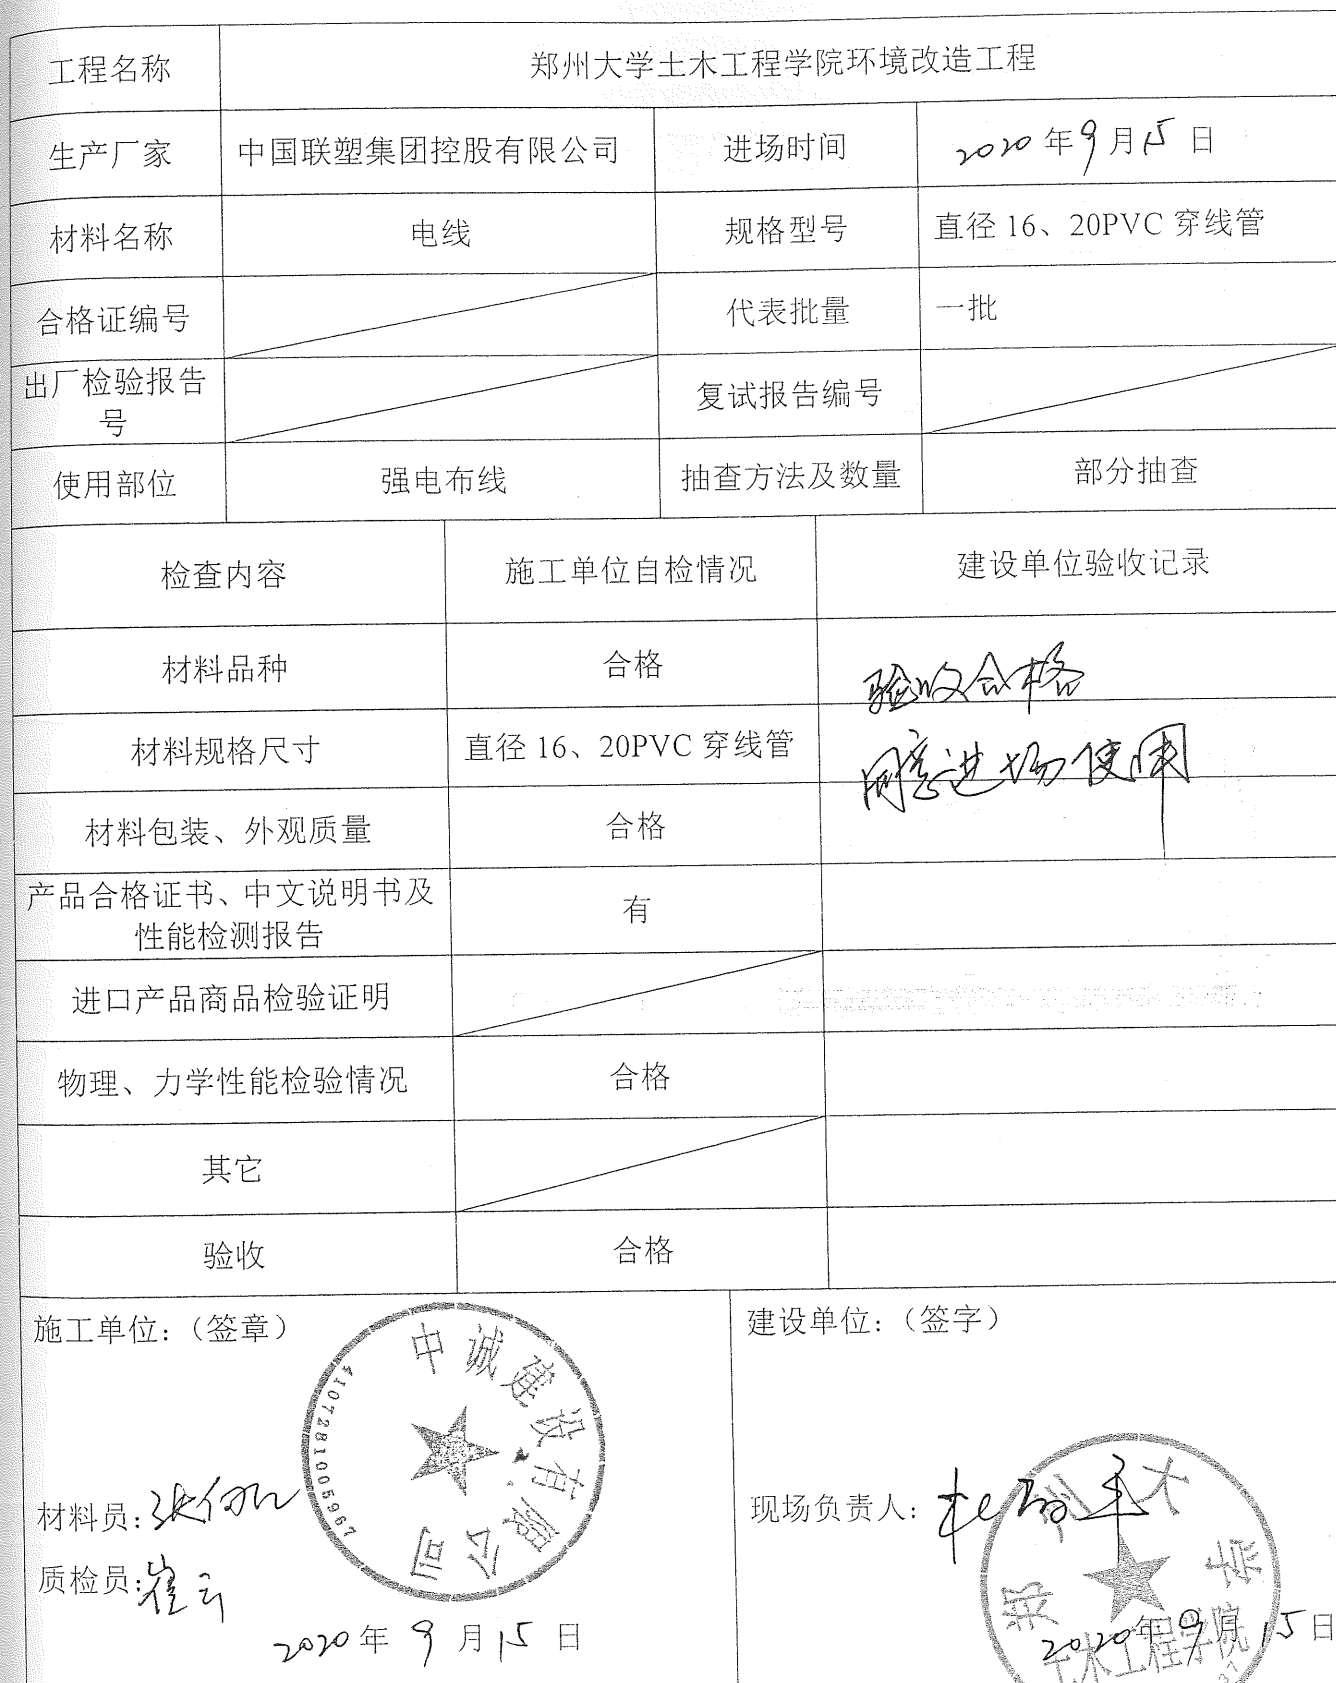 工程名称 郑州大学土木工程学院环境改造工程
生产厂家 中国联塑集团控股有限公司 进场时间 2020年9月15日
材料名称 电线 规格型号 直径16、20PVC穿线管
合格证编号 代表批量 一批
出厂检验报告
号
复试报告编号
使用部位 强电布线 抽查方法及数量 部分抽查
检查内容 施工单位自检情况 建设单位验收记录
材料品种 合格 验收合格
材料规格尺寸 直径16、20PVC穿线管 同意进场使用
材料包装、外观质量 合格
产品合格证书、中文说明书及
性能检测报告
有
进口产品商品检验证明
物理、力学性能检验情况 合格
其它
验收 合格
施工单位：（签章） 建设单位：（签字）
中诚建设有限公司
4107281005967
材料员： 现场负责人：
质检员：崔云
郑州大学
土木工程学院
2020年9月15日 2020年9月15日